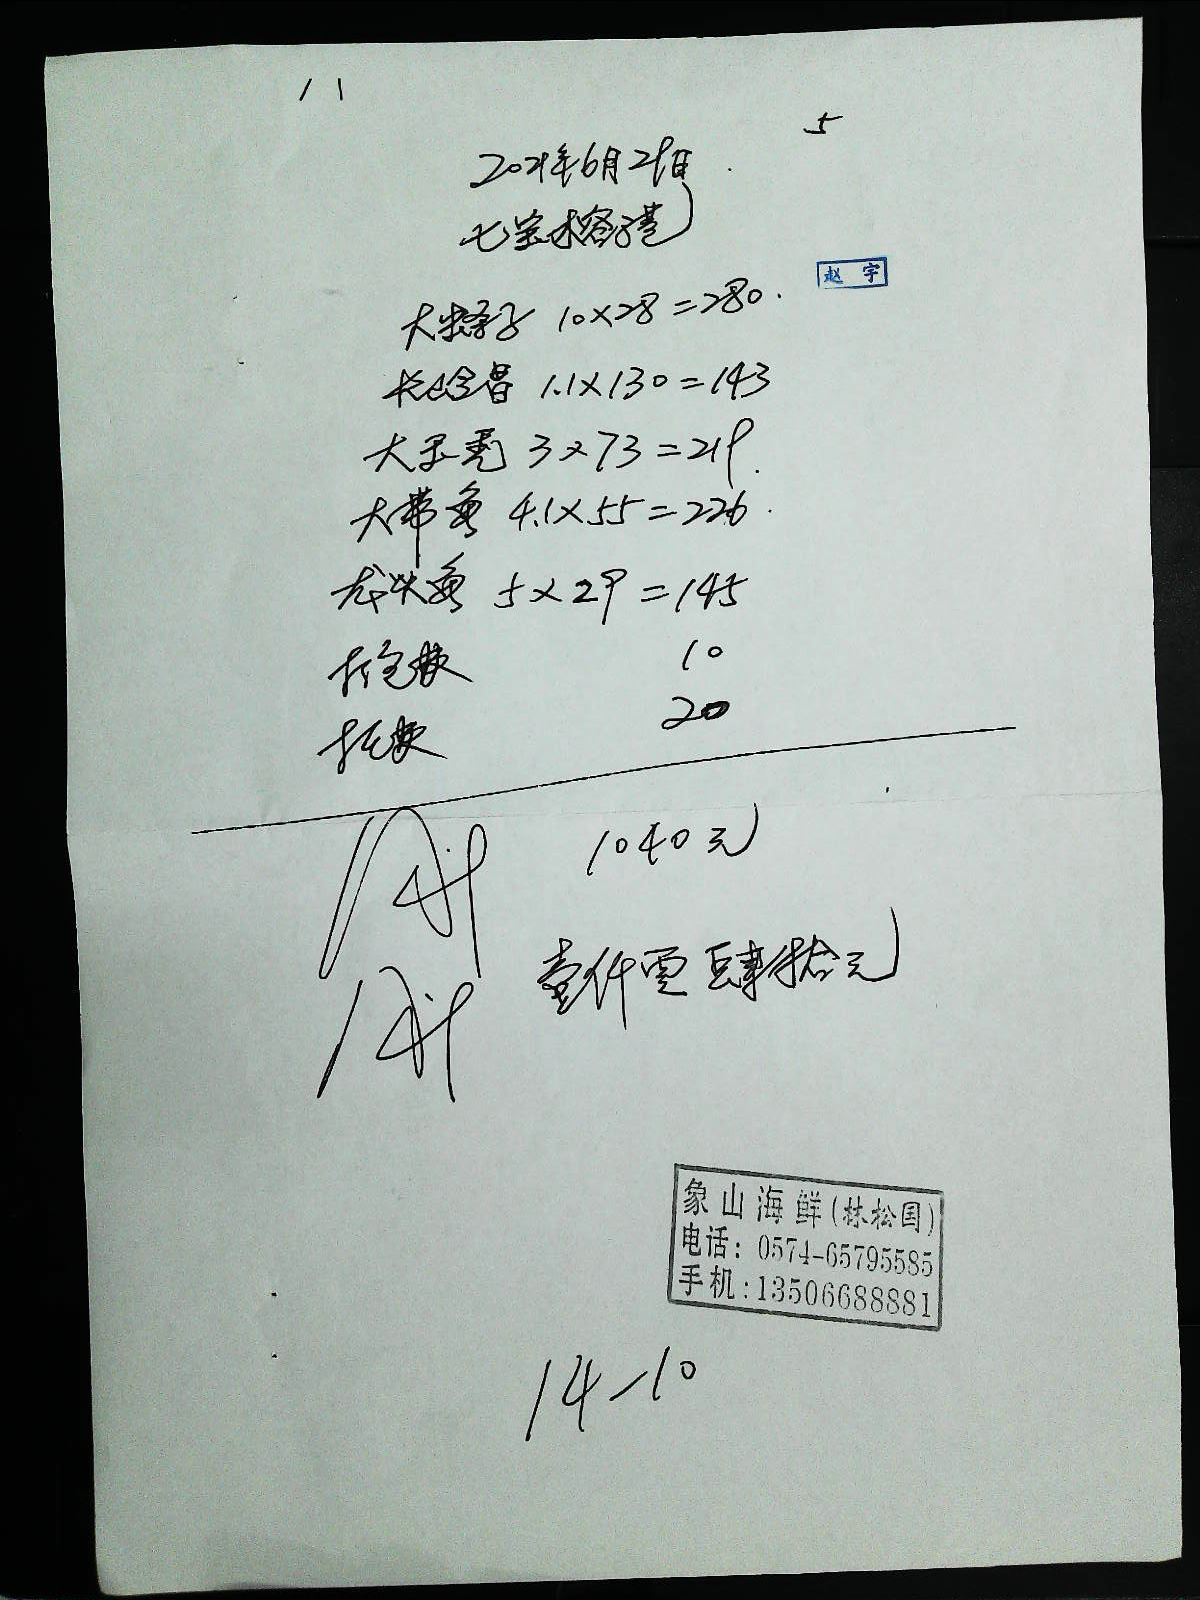 11
5
2021年6月29日
七宝木容港
赵 宇
大 10×28=280
1.1×130=143
大 3×73=219
大带鱼 4.1×55=226
龙头鱼 5×29=145
打包费 10
托费 20
1040元
壹仟零肆拾元
象山海鲜(林松国)
电话: 0574-65795585
手机:13506688881
14-10